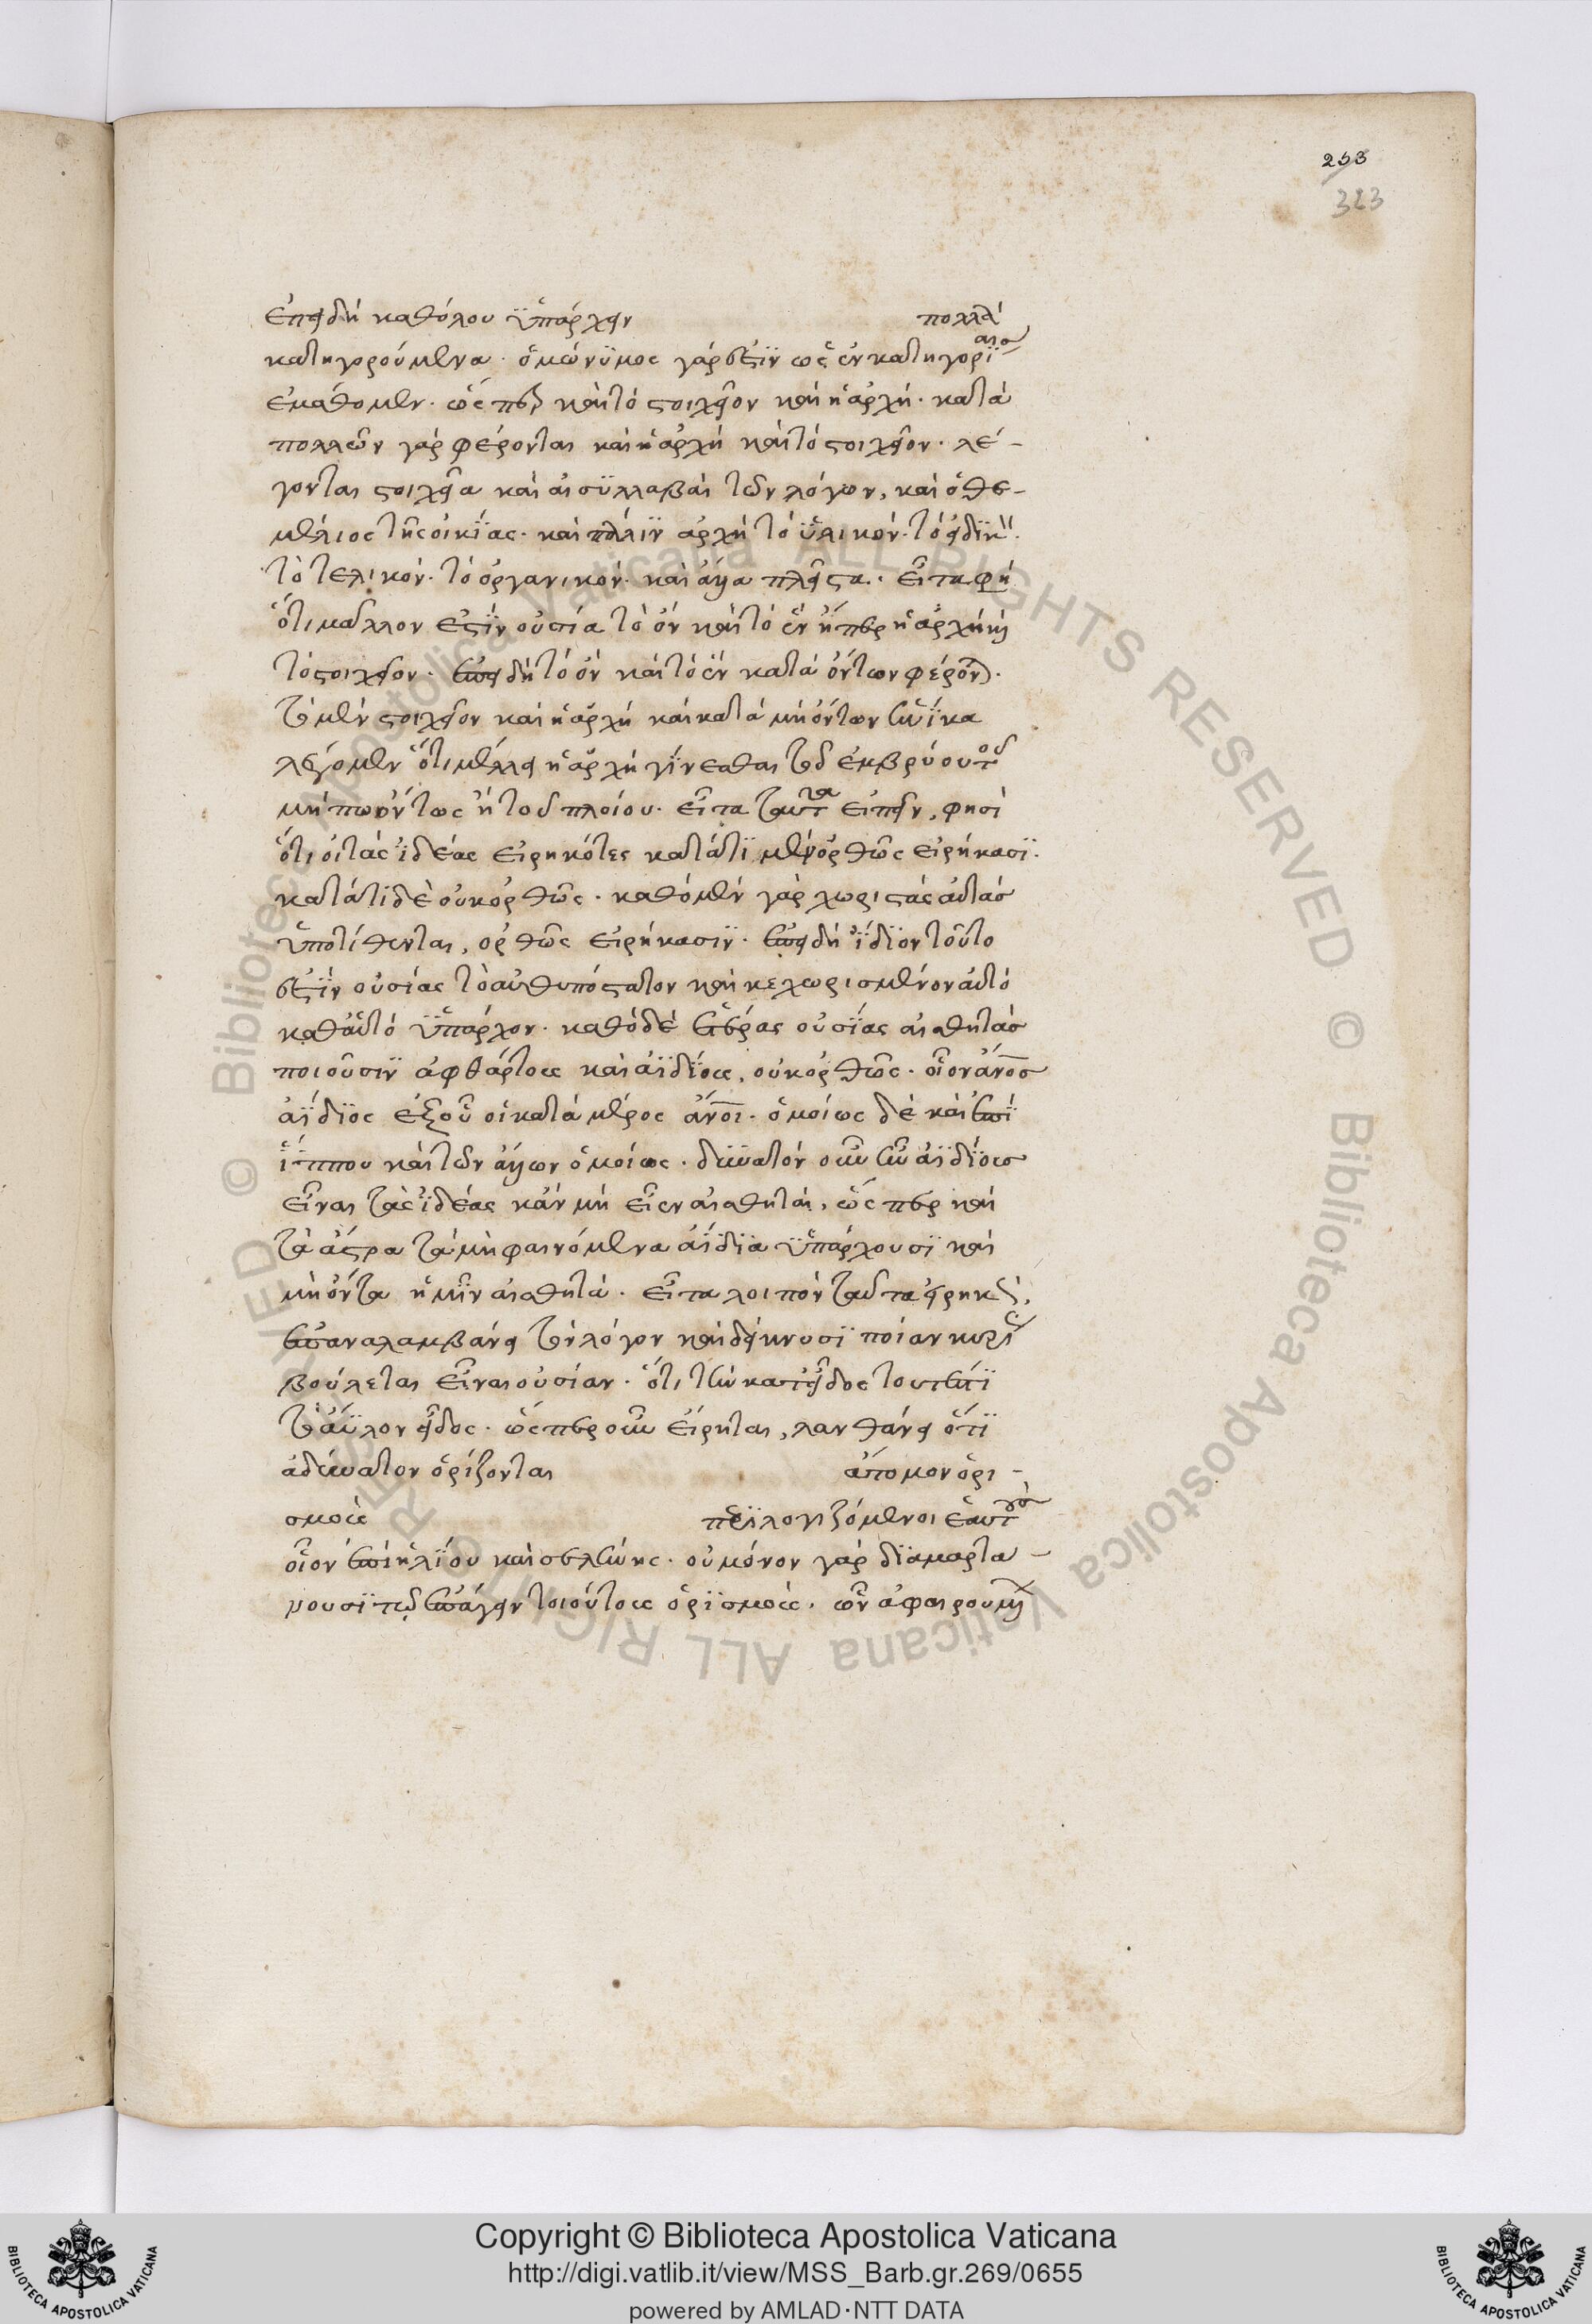 253
323
ἐπειδὴ καθόλου ὑπάρχειν πολλὰ
κατηγορούμενα· ὁμώνυμος γάρ ἐστιν ὡς ἐν κατηγορίαις
ἐμάθομεν· ὥσπερ καὶ τὸ στοιχεῖον καὶ ἡ ἀρχή· κατὰ
πολλῶν γὰρ φέρονται καὶ ἡ ἀρχὴ καὶ τὸ στοιχεῖον· λέ-
γονται στοιχεῖα καὶ αἱ συλλαβαὶ τῶν λόγων, καὶ ὁ θε-
μέλιος τῆς οἰκίας· καὶ πάλιν ἀρχὴ τὸ ὑλικόν· τὸ εἰδικὸν·
τὸ τελικόν· τὸ ὀργανικόν· καὶ ἄλλα πλεῖστα· εἶτα φη
ὅτι μᾶλλον ἐστὶν οὐσία τὸ ὂν καὶ τὸ ἓν ἤπερ ἡ ἀρχὴ καὶ
τὸ στοιχεῖον· ἐπειδὴ τὸ ὂν καὶ τὸ ἓν κατὰ ὄντων φέρονται·
τὸ μὲν στοιχεῖον καὶ ἡ ἀρχὴ καὶ κατὰ μὴ ὄντων ἡνίκα
λέγομεν ὅτι μέλλει ἡ ἀρχὴ γίνεσθαι τοῦ ἐμβρύου τοῦ
μήπω ὄντως ἢ τοῦ πλοίου· εἶτα ταῦτα εἰπεῖν, φησὶ
ὅτι οἱ τὰς ἰδέας εἰρηκότες κατά τι μὲν ὀρθῶς εἰρήκασι·
κατά τι δὲ οὐκ ὀρθῶς· καθὸ μὲν γὰρ χωριστὰς αὐτὰς
ὑποτίθενται, ὀρθῶς εἰρήκασιν· ἐπειδὴ ἴδιον τοῦτο
ἐστὶν οὐσίας τὸ αὐθυπόστατον καὶ κεχωρισμένον αὐτὸ
καθ' αὑτὸ ὑπάρχον· καθὸ δὲ ἑτέρας οὐσίας αἰσθητὰς
ποιοῦσιν ἀφθάρτοις καὶ ἀϊδίοις, οὐκ ὀρθῶς· οἷον ἄνος
ἀΐδιος ἐξ οὗ οἱ κατὰ μέρος ἄνοι· ὁμοίως δὲ καὶ ἐπὶ
ἵππου καὶ τῶν ἄλλων ὁμοίως· δυνατὸν οὖν ἦν ἀϊδίοις
εἶναι τὰς ἰδέας κἂν μὴ εἶεν αἰσθηταί, ὥσπερ καὶ
τὰ ἄστρα τὰ μὴ φαινόμενα ἀΐδια ὑπάρχουσι καὶ
μὴ ὄντα ἡμῖν αἰσθητά· εἶτα λοιπὸν ταῦτα εἰρηκὼς,
ἐπαναλαμβάνει τὸν λόγον καὶ δείκνυσι ποίαν κυρίως
βούλεται εἶναι οὐσίαν· ὅτι τὴν κατ' εἶδος τουτέστι
τὸ ἄϋλον εἶδος· ὥσπερ οὖν εἴρηται, λανθάνει ὅτι
ἀδύνατον ὁρίζονται ἄτομον ὁρι-
σμοῖς περιλογιζόμενοι ἑαυτοὺς
οἷον ἐπὶ ἡλίου καὶ σελήνης· οὐ μόνον γὰρ διαμαρτά-
νουσι τῷ ἐπάγειν τοιούτοις ὁρισμοῖς, ὧν ἀφαιρουμένων
Copyright © Biblioteca Apostolica Vaticana
http://digi.vatlib.it/view/MSS_Barb.gr.269/0655
powered by AMLAD·NTT DATA